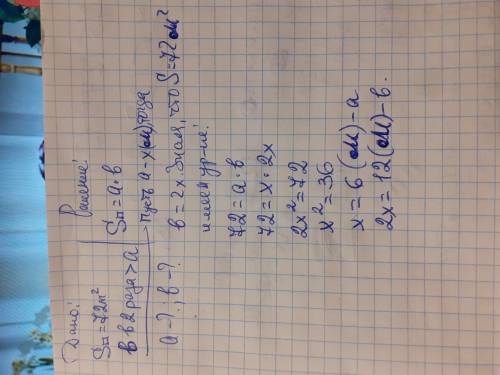 Дано:
Sп = 72м²
в в 2 раза > a
a - ?; в - ?
Решение:
Sп = a · в
Пусть a - x(см), тогда
в = 2x. Зная, что S = 72 см²
имеем ур-ие:
72 = a · в
72 = x · 2x
2x² = 72
x² = 36
x = 6 (см) - a
2x = 12 (см) - в.